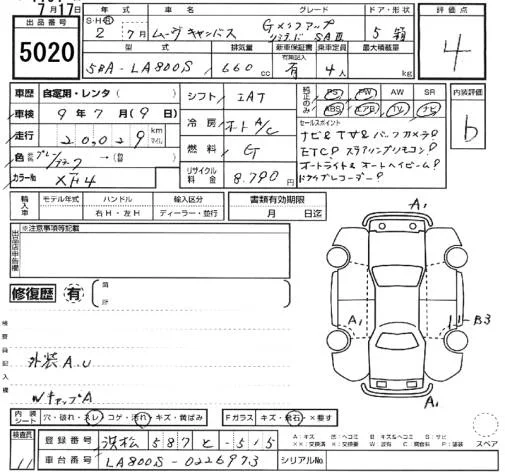 7月17日
出品番号 5020
年式 車名 グレード ドア・形状 評価点
S・H・R 2年 7月 ムーヴ キャンバス Gメイクアップ リミテッド SAⅢ 5 箱 4
型式 排気量 新車保証書 乗車定員 最大積載量
有無記入
5BA-LA800S 660cc 有 4人 kg
車歴 自家用・レンタ( )
車検 9年7月(9日)
走行 20,029 km マイル
色
カラーNo XH4
シフト IAT
冷房 オート A/C
燃料 G
リサイクル料金 8,790円
純正のみ PS PW AW SR
ABS エアB TV ナビ
内装評価 b
セールスポイント
ナビ&TV&バックカメラ!
ETC! ステアリングリモコン!
オートライト&オートハイビーム!
ドライブレコーダー!
輸入車 モデル年式 ハンドル 輸入区分 書類有効期限
右H・左H ディーラー・並行 月 日迄
出品店申告欄 ※注意事項等記載
修復歴 有
箇所
検査員記入欄
外装A.U
WキャップA
A1
A1
B3
A1
内装シート 穴・破れ・スレ コゲ・汚れ・キズ・黄ばみ Fガラス キズ・飛石・×要す
検査員 11
登録番号 浜松 587 と -515
車台番号 LA800S-0226973 シリアルNo
A:キズ B:キズ&ヘコミ S:サビ
××:交換済 X:交換要 W:波有 C:腐食 P:塗装
スペア